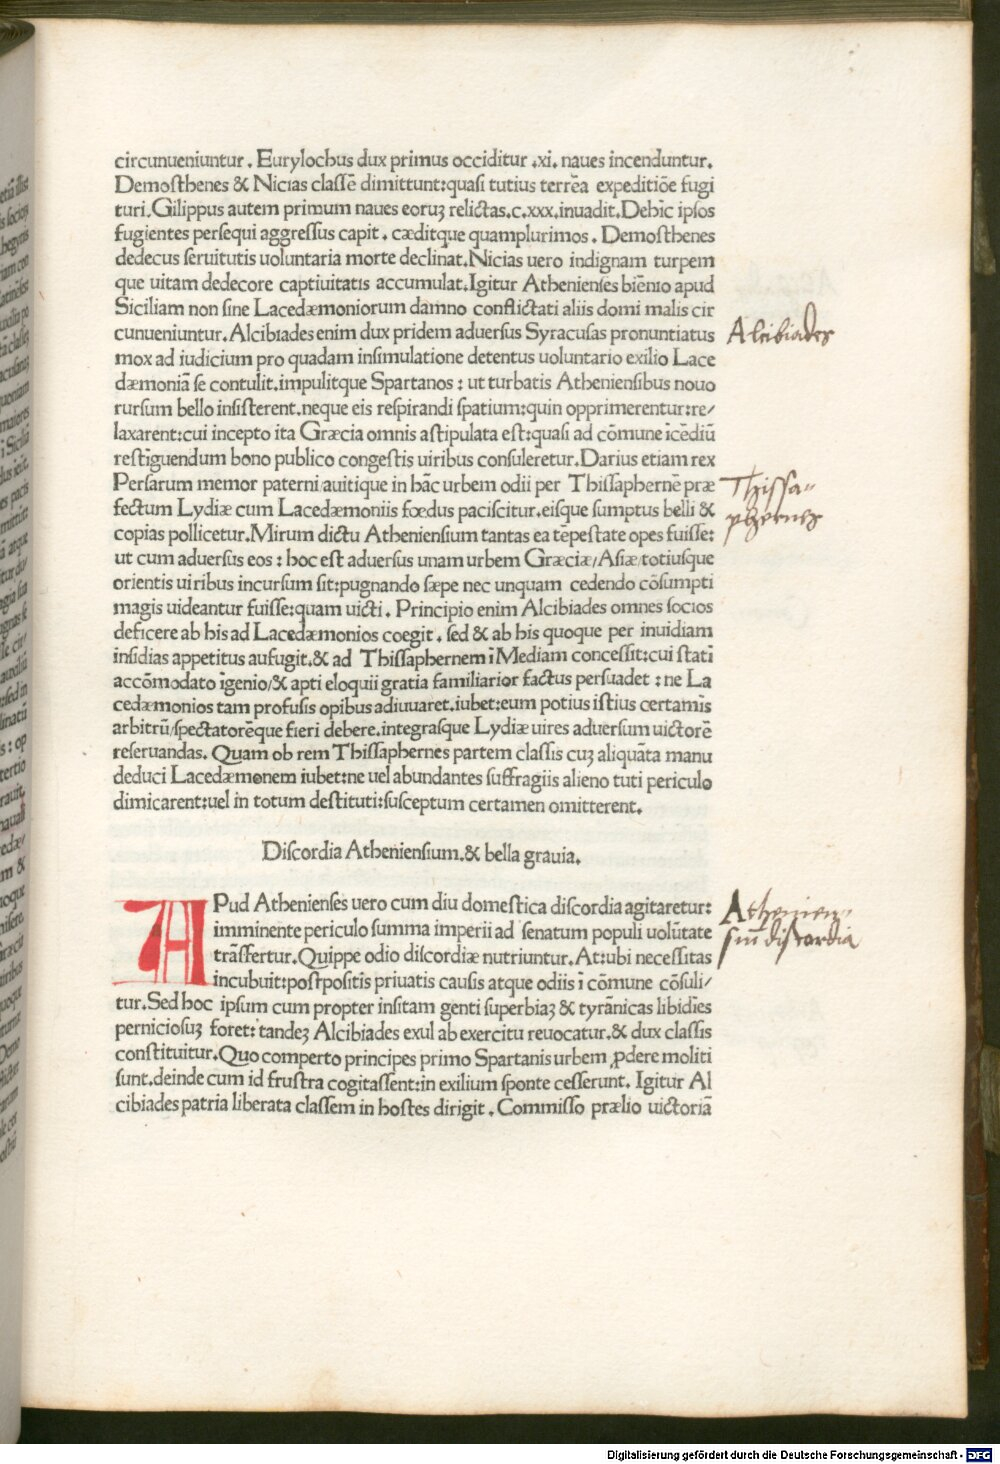 circunueniuntur. Eurylochus dux primus occiditur .xi. naues incenduntur.
Demosthenes & Nicias classē dimittunt:quasi tutius terrēa expeditiōe fugi
turi.Gilippus autem primum naues eoruȝ relictas.c.xxx.inuadit.Dehīc ipsos
fugientes persequi aggressus capit . cæditque quamplurimos . Demosthenes
dedecus seruitutis uoluntaria morte declinat.Nicias uero indignam turpem
que uitam dedecore captiuitatis accumulat.Igitur Athenienses biēnio apud
Siciliam non sine Lacedæmoniorum damno conflictati aliis domi malis cir
cunueniuntur. Alcibiades enim dux pridem aduersus Syracusas pronuntiatus
Alcibiades
mox ad iudicium pro quadam insimulatione detentus uoluntario exilio Lace
dæmoniā se contulit.impulitque Spartanos : ut turbatis Atheniensibus nouo
rursum bello insisterent.neque eis respirandi spatium:quin opprimerentur:re/
laxarent:cui incepto ita Græcia omnis astipulata est:quasi ad cōmune īcēdiū
restīguendum bono publico congestis uiribus consuleretur.Darius etiam rex
Persarum memor paterni auitique in hāc urbem odii per Thissaphernē præ
Thissa-
phernes
fectum Lydiæ cum Lacedæmoniis fœdus paciscitur.eisque sumptus belli &
copias pollicetur.Mirum dictu Atheniensium tantas ea tēpestate opes fuisse:
ut cum aduersus eos : hoc est aduersus unam urbem Græciæ/Asiæ/totiusque
orientis uiribus incursum sit:pugnando sæpe nec unquam cedendo cōsumpti
magis uideantur fuisse:quam uicti . Principio enim Alcibiades omnes socios
deficere ab his ad Lacedæmonios coegit . sed & ab his quoque per inuidiam
insidias appetitus aufugit.& ad Thissaphernem ī Mediam concessit:cui statī
accōmodato īgenio/& apti eloquii gratia familiarior factus persuadet : ne La
cedæmonios tam profusis opibus adiuuaret.iubet:eum potius istius certamīs
arbitrū/spectatorēque fieri debere.integrasque Lydiæ uires aduersum uictorē
reseruandas. Quam ob rem Thissaphernes partem classis cuȝ aliquāta manu
deduci Lacedæmonem iubet:ne uel abundantes suffragiis alieno tuti periculo
dimicarent:uel in totum destituti:susceptum certamen omitterent.
Discordia Atheniensium.& bella grauia.
APud Athenienses uero cum diu domestica discordia agitaretur:
Athenien-
sium discordia
imminente periculo summa imperii ad senatum populi uolūtate
trāsfertur.Quippe odio discordiæ nutriuntur. At:ubi necessitas
incubuit:postpositis priuatis causis atque odiis ī cōmune cōsuli/
tur.Sed hoc ipsum cum propter insitam genti superbiaȝ & tyrānicas libidīes
perniciosuȝ foret: tandeȝ Alcibiades exul ab exercitu reuocatur.& dux classis
constituitur.Quo comperto principes primo Spartanis urbem ꝓdere moliti
sunt.deinde cum id frustra cogitassent:in exilium sponte cesserunt. Igitur Al
cibiades patria liberata classem in hostes dirigit . Commisso prælio uictoriā
Digitalisierung gefördert durch die Deutsche Forschungsgemeinschaft - DFG